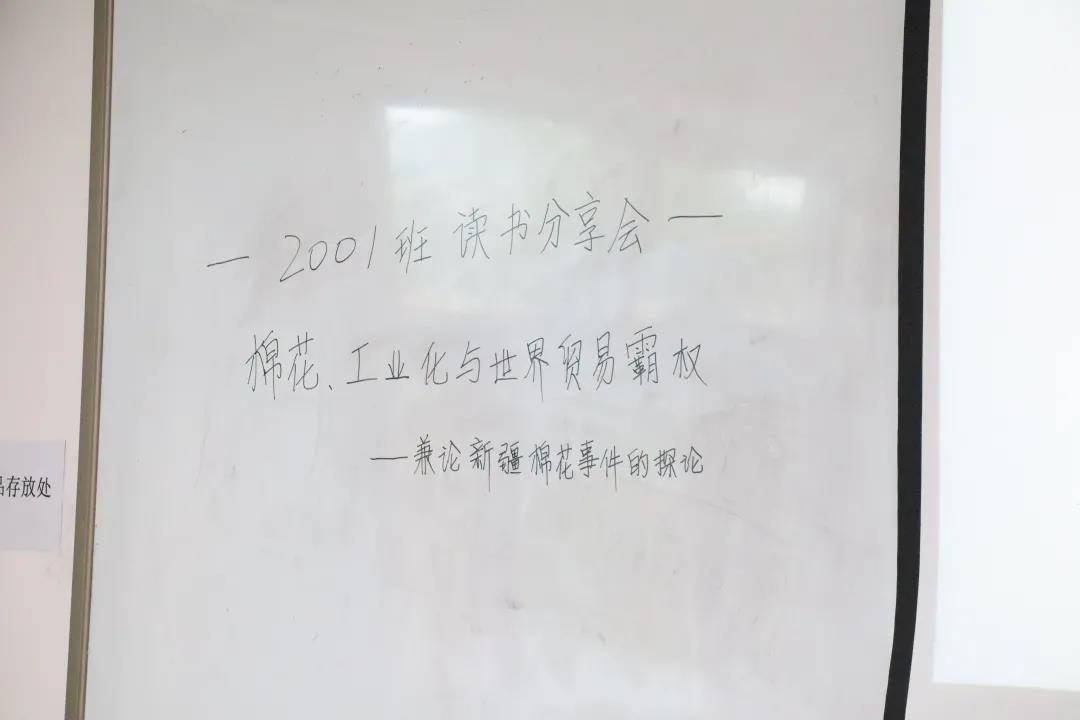 — 2001班 读书分享会 —
棉花、工业化与世界贸易霸权
—兼论新疆棉花事件的探论
品存放处